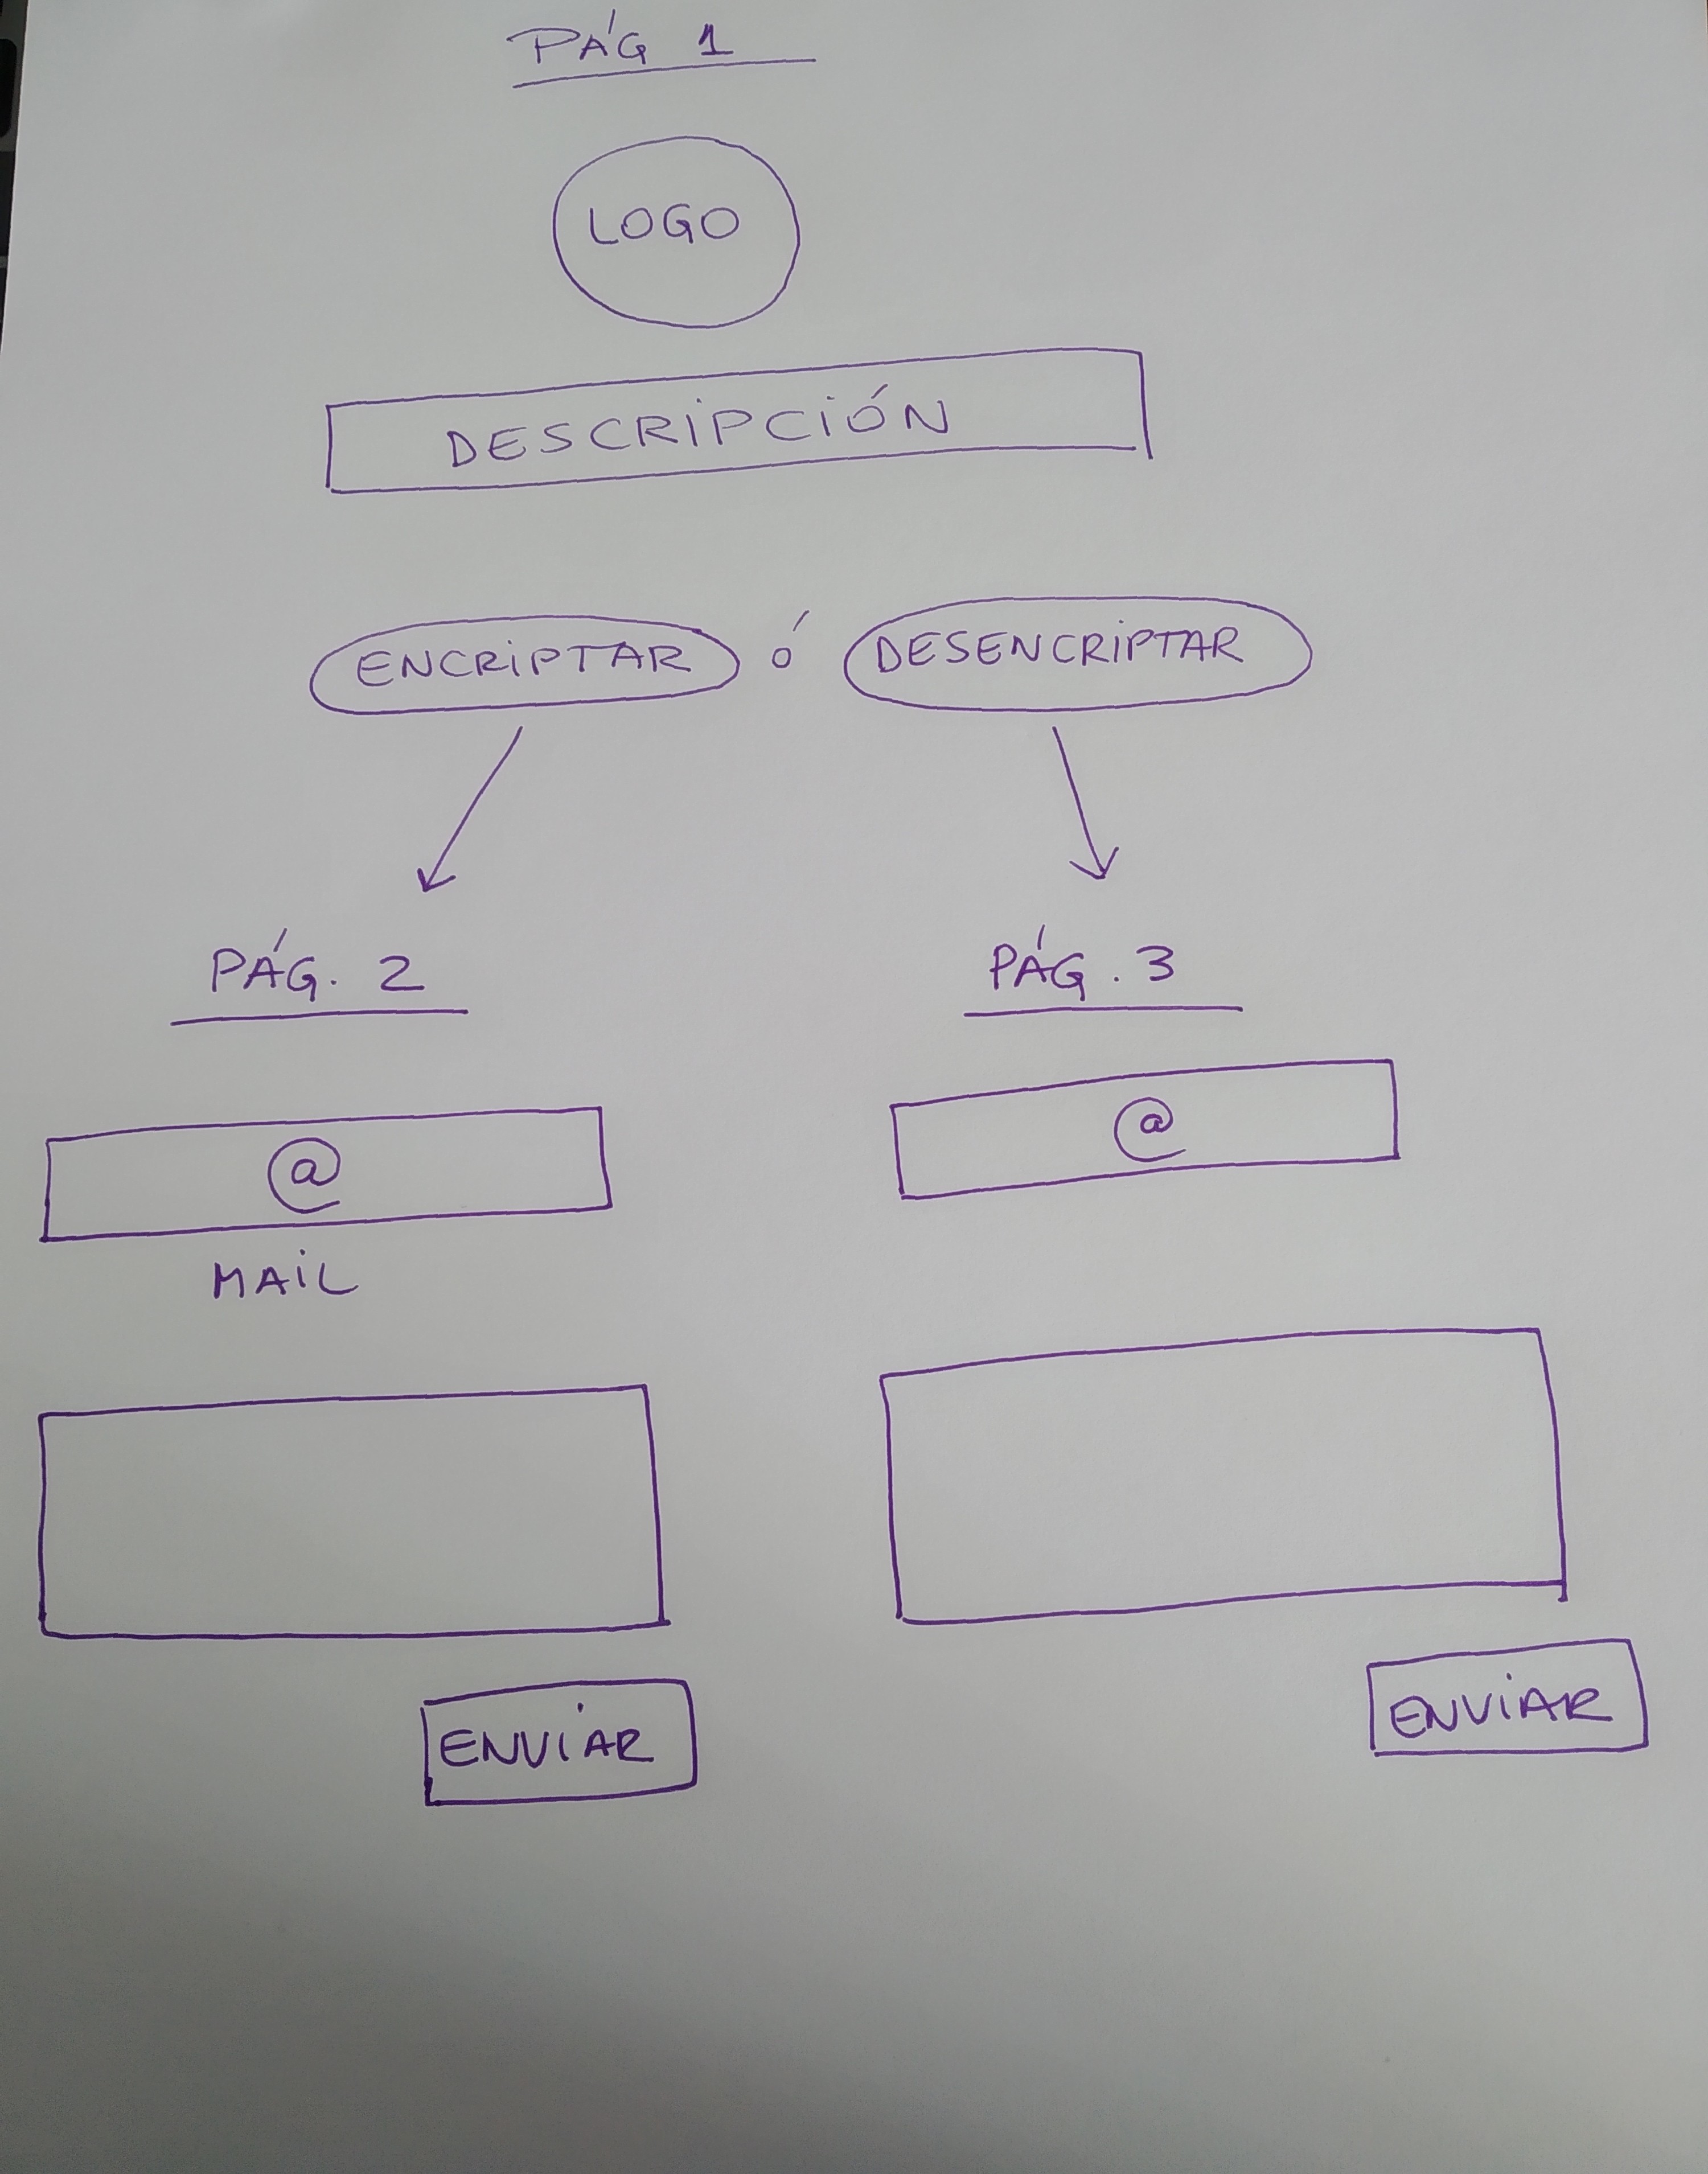 PÁG 1
LOGO
DESCRIPCIÓN
ENCRIPTAR ó DESENCRIPTAR
PÁG. 2
PÁG. 3
@
@
MAIL
ENVIAR
ENVIAR